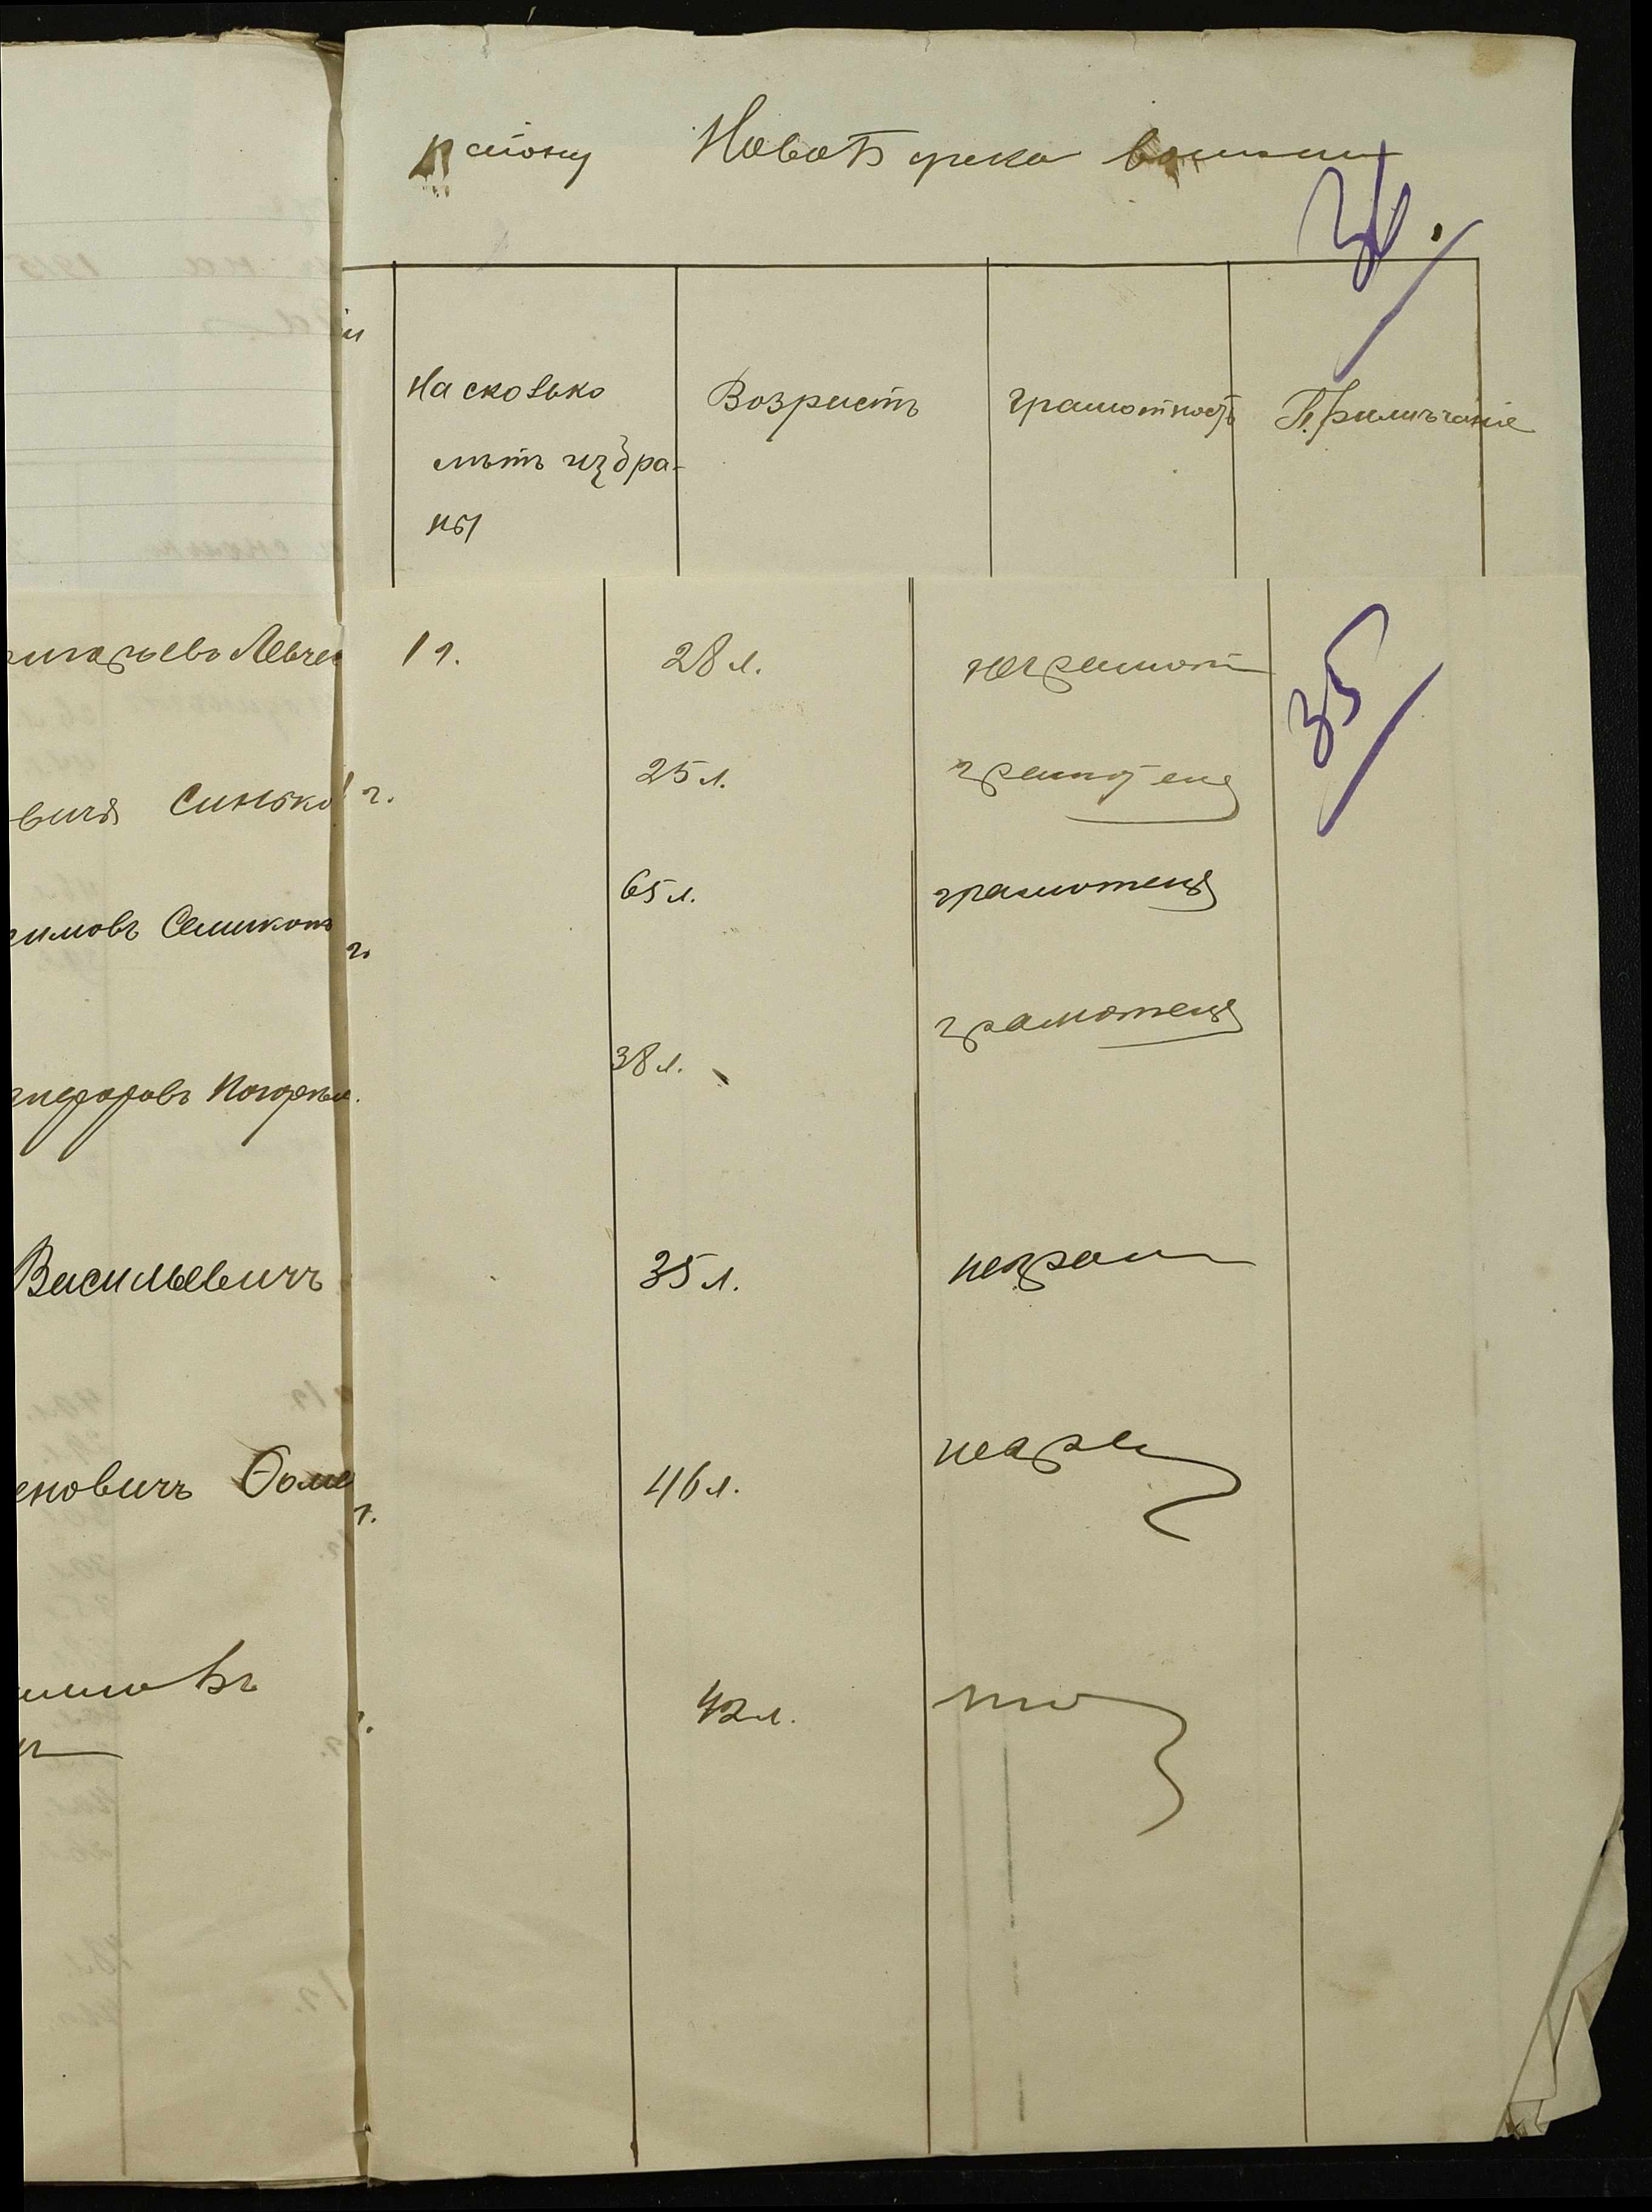 району Ново Бурека волости
34.
На сколько лѣтъ избра-
ны
Возрастъ
грамотность
Примѣчаніе
35
Левчен 1 г. 28 л. неграмот
вичъ Синько 1 г. 25 л. грамотенъ
имовъ Семикон г. 65 л. грамотенъ
38 л. грамотенъ
Васильевичъ 35 л. неграм
еновичъ Ѳоме г. 46 л. негра
42 л.